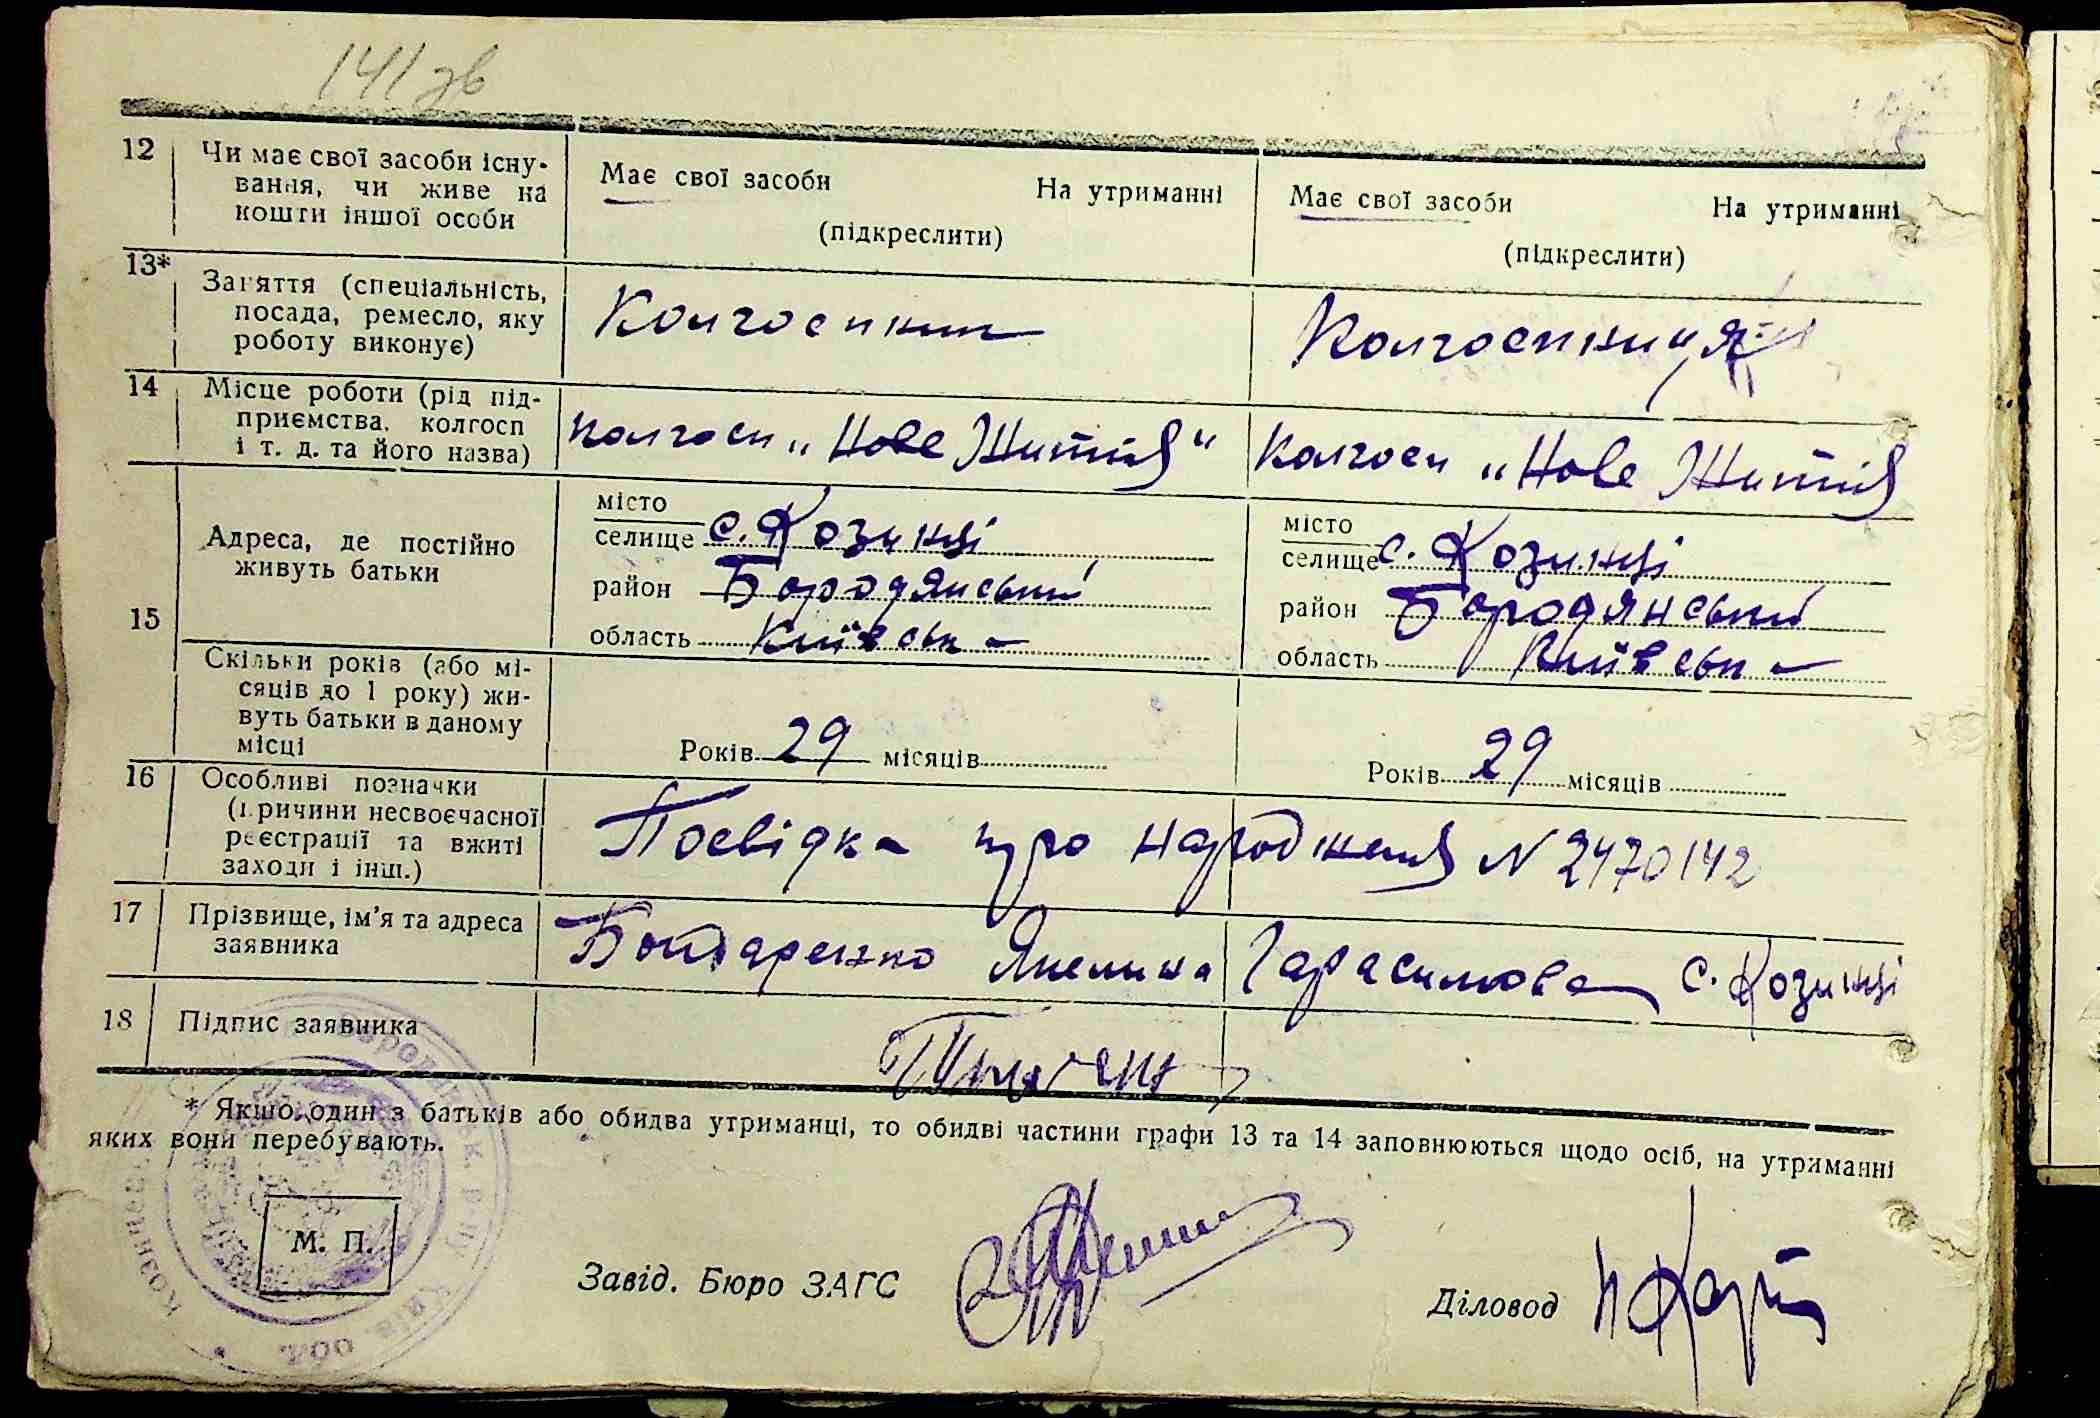 141 зв
12 Чи має свої засоби існу-
вання, чи живе на
кошти іншої особи
Має свої засоби На утриманні
(підкреслити)
Має свої засоби На утриманні
(підкреслити)
13* Заняття (спеціальність,
посада, ремесло, яку
роботу виконує)
Колгоспник
Колгоспниця
14 Місце роботи (рід під-
приємства, колгосп
і т. д. та його назва)
колгосп „Нове Життя"
Колгосп „Нове Життя
15 Адреса, де постійно
живуть батьки
місто
селище с. Козинці
район Бородянський
область Київськ
місто
селище с. Козинці
район Бородянський
область Київськ
Скільки років (або мі-
сяців до 1 року) жи-
вуть батьки в даному
місці
Років 29 місяців
Років 29 місяців
16 Особливі позначки
(причини несвоєчасної
реєстрації та вжиті
заходи і інш.)
Посвідка про народження N 2470142
17 Прізвище, ім'я та адреса
заявника
Бондаренко Якелина Гарасимова с. Козинці
18 Підпис заявника
* Якщо один з батьків або обидва утриманці, то обидві частини графи 13 та 14 заповнюються щодо осіб, на утриманні
яких вони перебувають.
М. П.
Завід. Бюро ЗАГС
Діловод